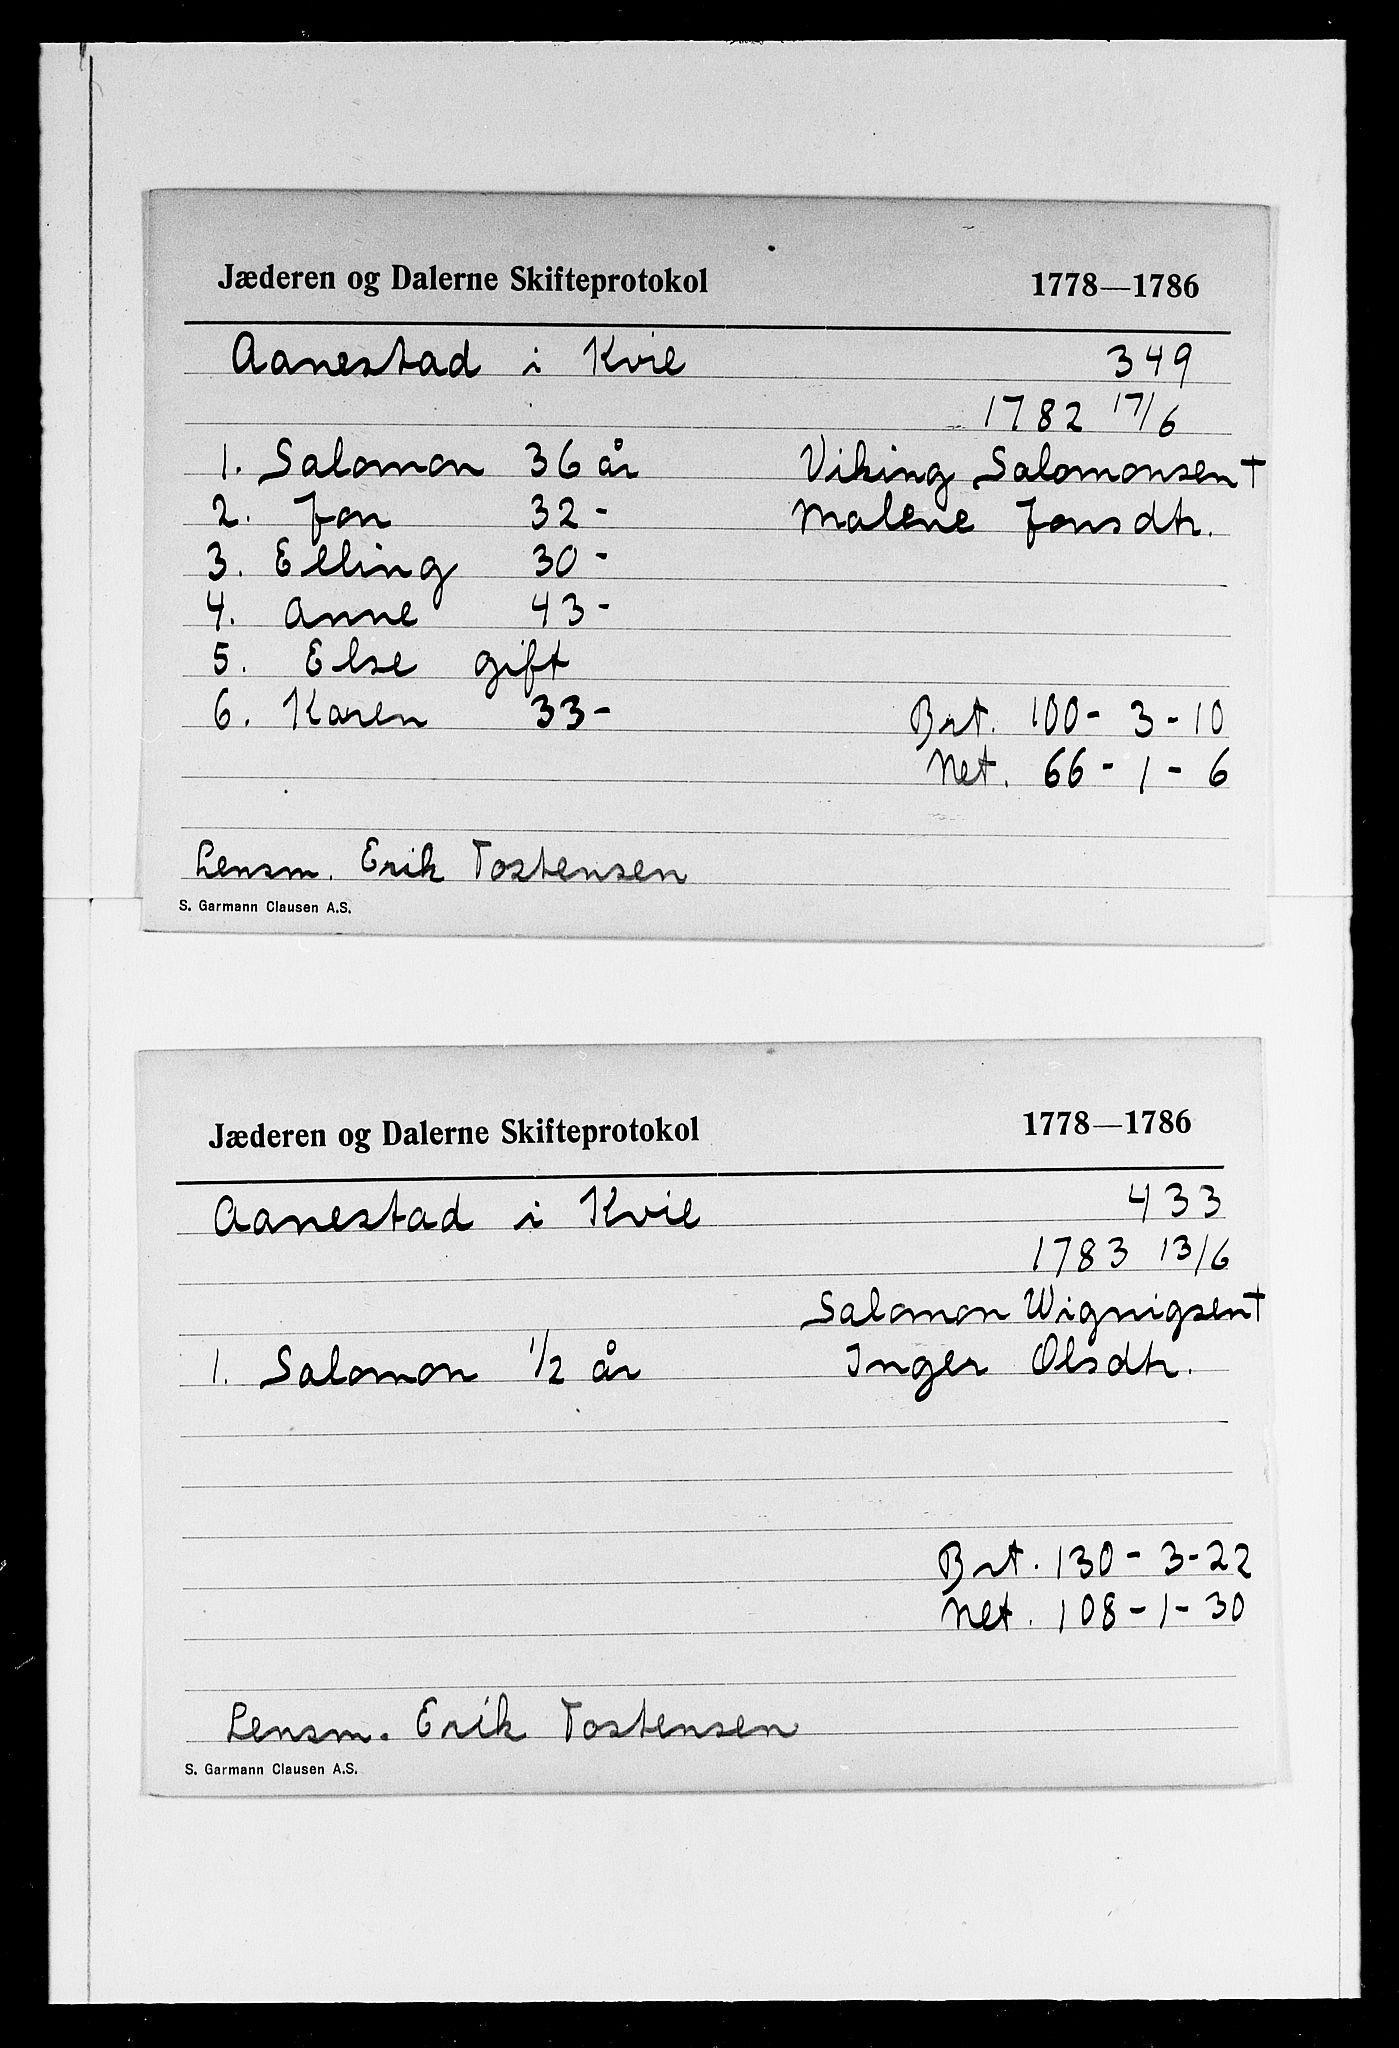 Jæderen og Dalerne Skifteprotokol 1778—1786
Aanestad i Kvie 349
1782 17/6
1. Salomon 36 år Viking Salomonsen †
2. Jon 32 - Malene Jonsdtr.
3. Elling 30 -
4. Anne 43 -
5. Else gift
6. Karen 33 - Brt. 100 - 3 - 10
Net. 66 - 1 - 6
Lensm. Erik Tostensen
S. Garmann Clausen A.S.
Jæderen og Dalerne Skifteprotokol 1778—1786
Aanestad i Kvie 433
1783 13/6
Salomon Wignigsen †
1. Salomon 1/2 år Inger Olsdtr.
Brt. 130 - 3 - 22
Net. 108 - 1 - 30
Lensm. Erik Tostensen
S. Garmann Clausen A.S.